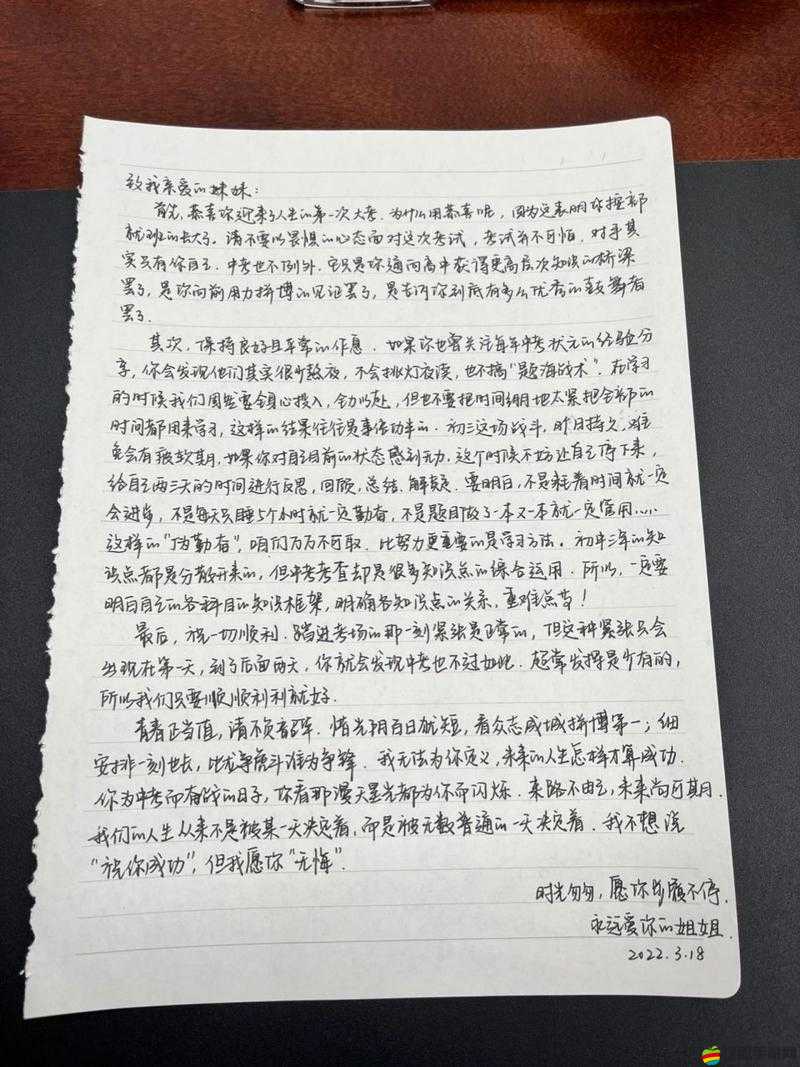 致我亲爱的妹妹：
首先，恭喜你迎来了人生的第一次大考。为什么用恭喜呢，因为这表明你按部
就班的长大了。请不要以畏惧的心态面对这次考试，考试并不可怕，对手其
实只有你自己。中考也不例外，它只是你通向高中获得更高层次知识的桥梁
罢了，是你向前用力拼搏的见证罢了，是告诉你到底有多么优秀的鼓舞者
罢了。
其次，保持良好且平常的作息。如果你也曾关注每年中考状元的经验分
享，你会发现他们其实很少熬夜，不会挑灯夜读，也不搞“题海战术”。在学习
的时候我们固然要全身心投入，全力以赴，但也不要把时间绷地太紧把全部的
时间都用来学习，这样的结果往往是事倍功半的。初三这场战斗，旷日持久，难
免会有疲软期，如果你对自己目前的状态感到无力，这个时候不妨让自己停下来，
给自己两三天的时间进行反思，回顾，总结，解疑。要明白，不是耗着时间就一定
会进步，不是每天只睡5个小时就一定勤奋，不是题目做了一本又一本就一定管用……
这样的“伪勤奋”，咱们万万不可取。比努力更重要的是学习方法。初中三年的知
识点都是分散开来的，但中考考查却是很多知识点的综合运用。所以，一定要
明白自己的各科目的知识框架，明确各知识点的关系，重难点等！
最后，祝一切顺利。踏进考场的那一刻紧张是正常的，但这种紧张只会
出现在第一天，到了后面两天，你就会发现中考也不过如此。超常发挥是少有的，
所以我们只要顺顺利利就好。
青春正当值，请不负韶华。惜光阴百日犹短，看众志成城拼搏第一；细
安排一刻也长，比龙争虎斗谁为争锋。我无法为你定义，未来的人生怎样才算成功。
你为中考而奋战的日子，你看那漫天星光都为你而闪烁。来路不由己，未来尚可期。
我们的人生从来不是被某一天决定着，而是被无数普通的一天决定着。我不想说
“祝你成功”，但我愿你“无悔”。
时光匆匆，愿你步履不停。
永远爱你的姐姐。
2022.3.18